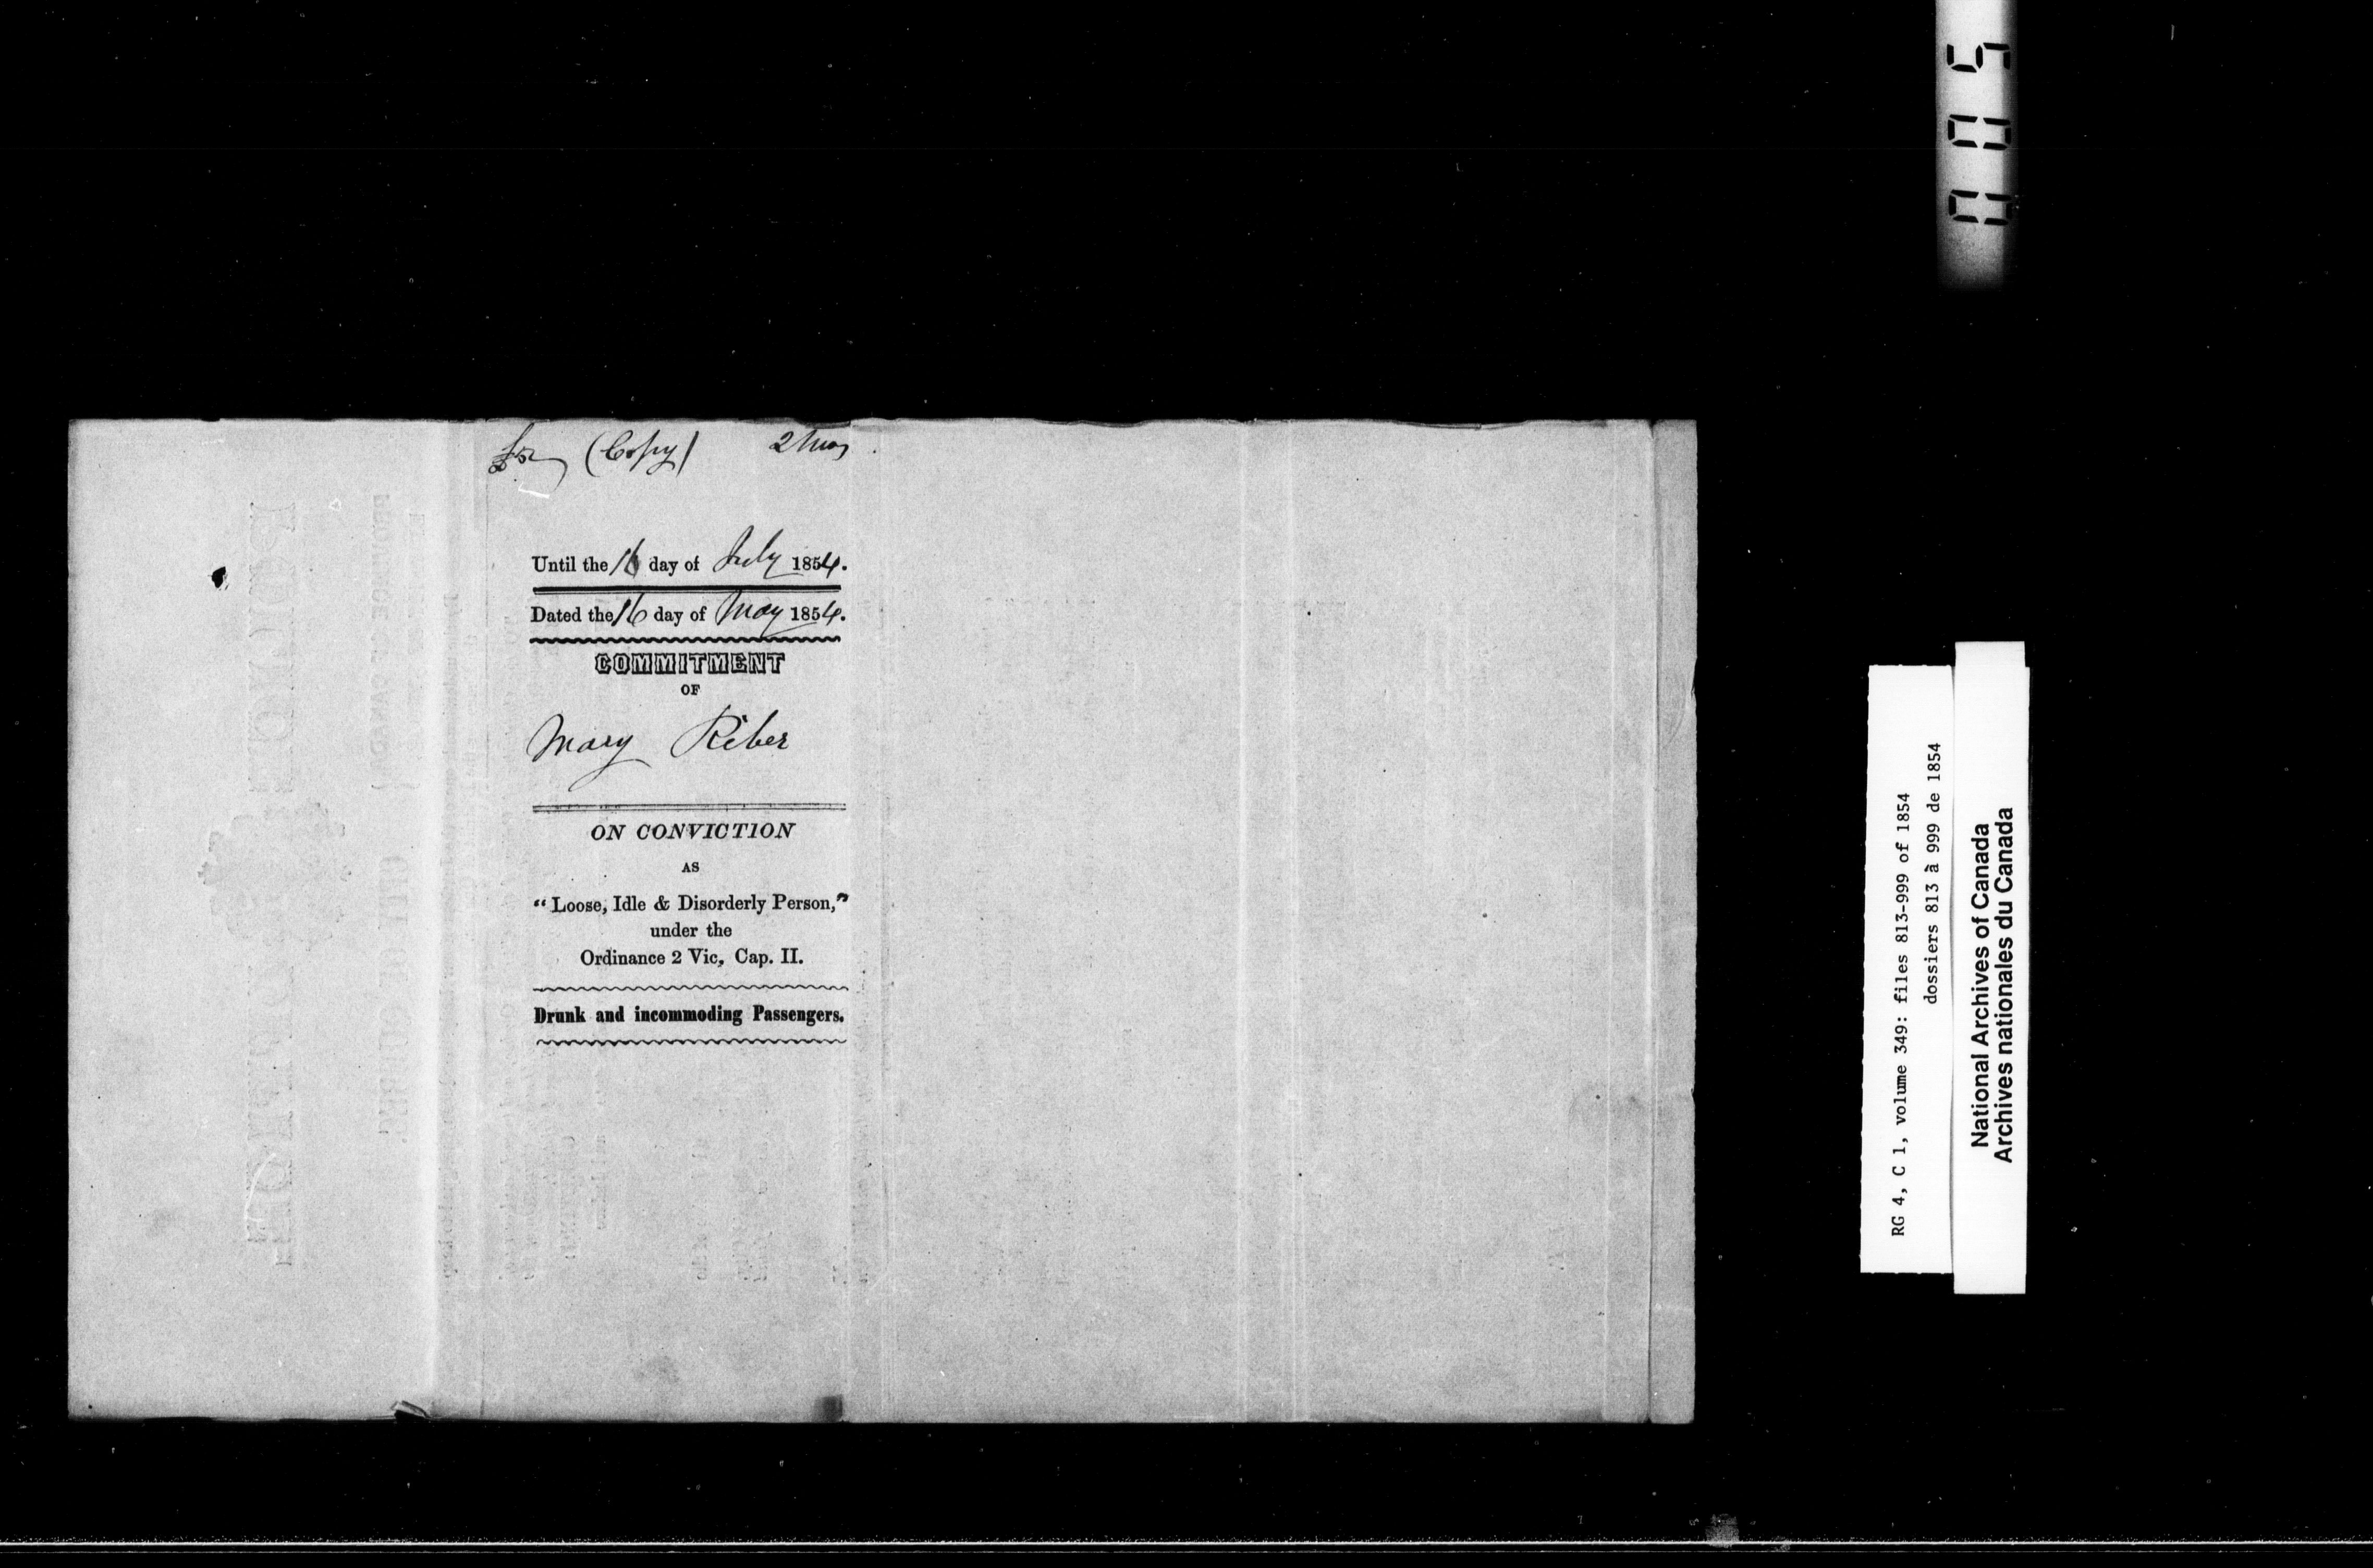 (Copy) 2 Mos
Until the 16 day of July 1854.
Dated the 16 day of May 1854.
COMMITMENT
OF
Mary Riber
ON CONVICTION
AS
"Loose, Idle & Disorderly Person,"
under the
Ordinance 2 Vic, Cap. II.
Drunk and incommoding Passengers.
RG 4, C 1, volume 349: files 813-999 of 1854
dossiers 813 à 999 de 1854
National Archives of Canada
Archives nationales du Canada
005